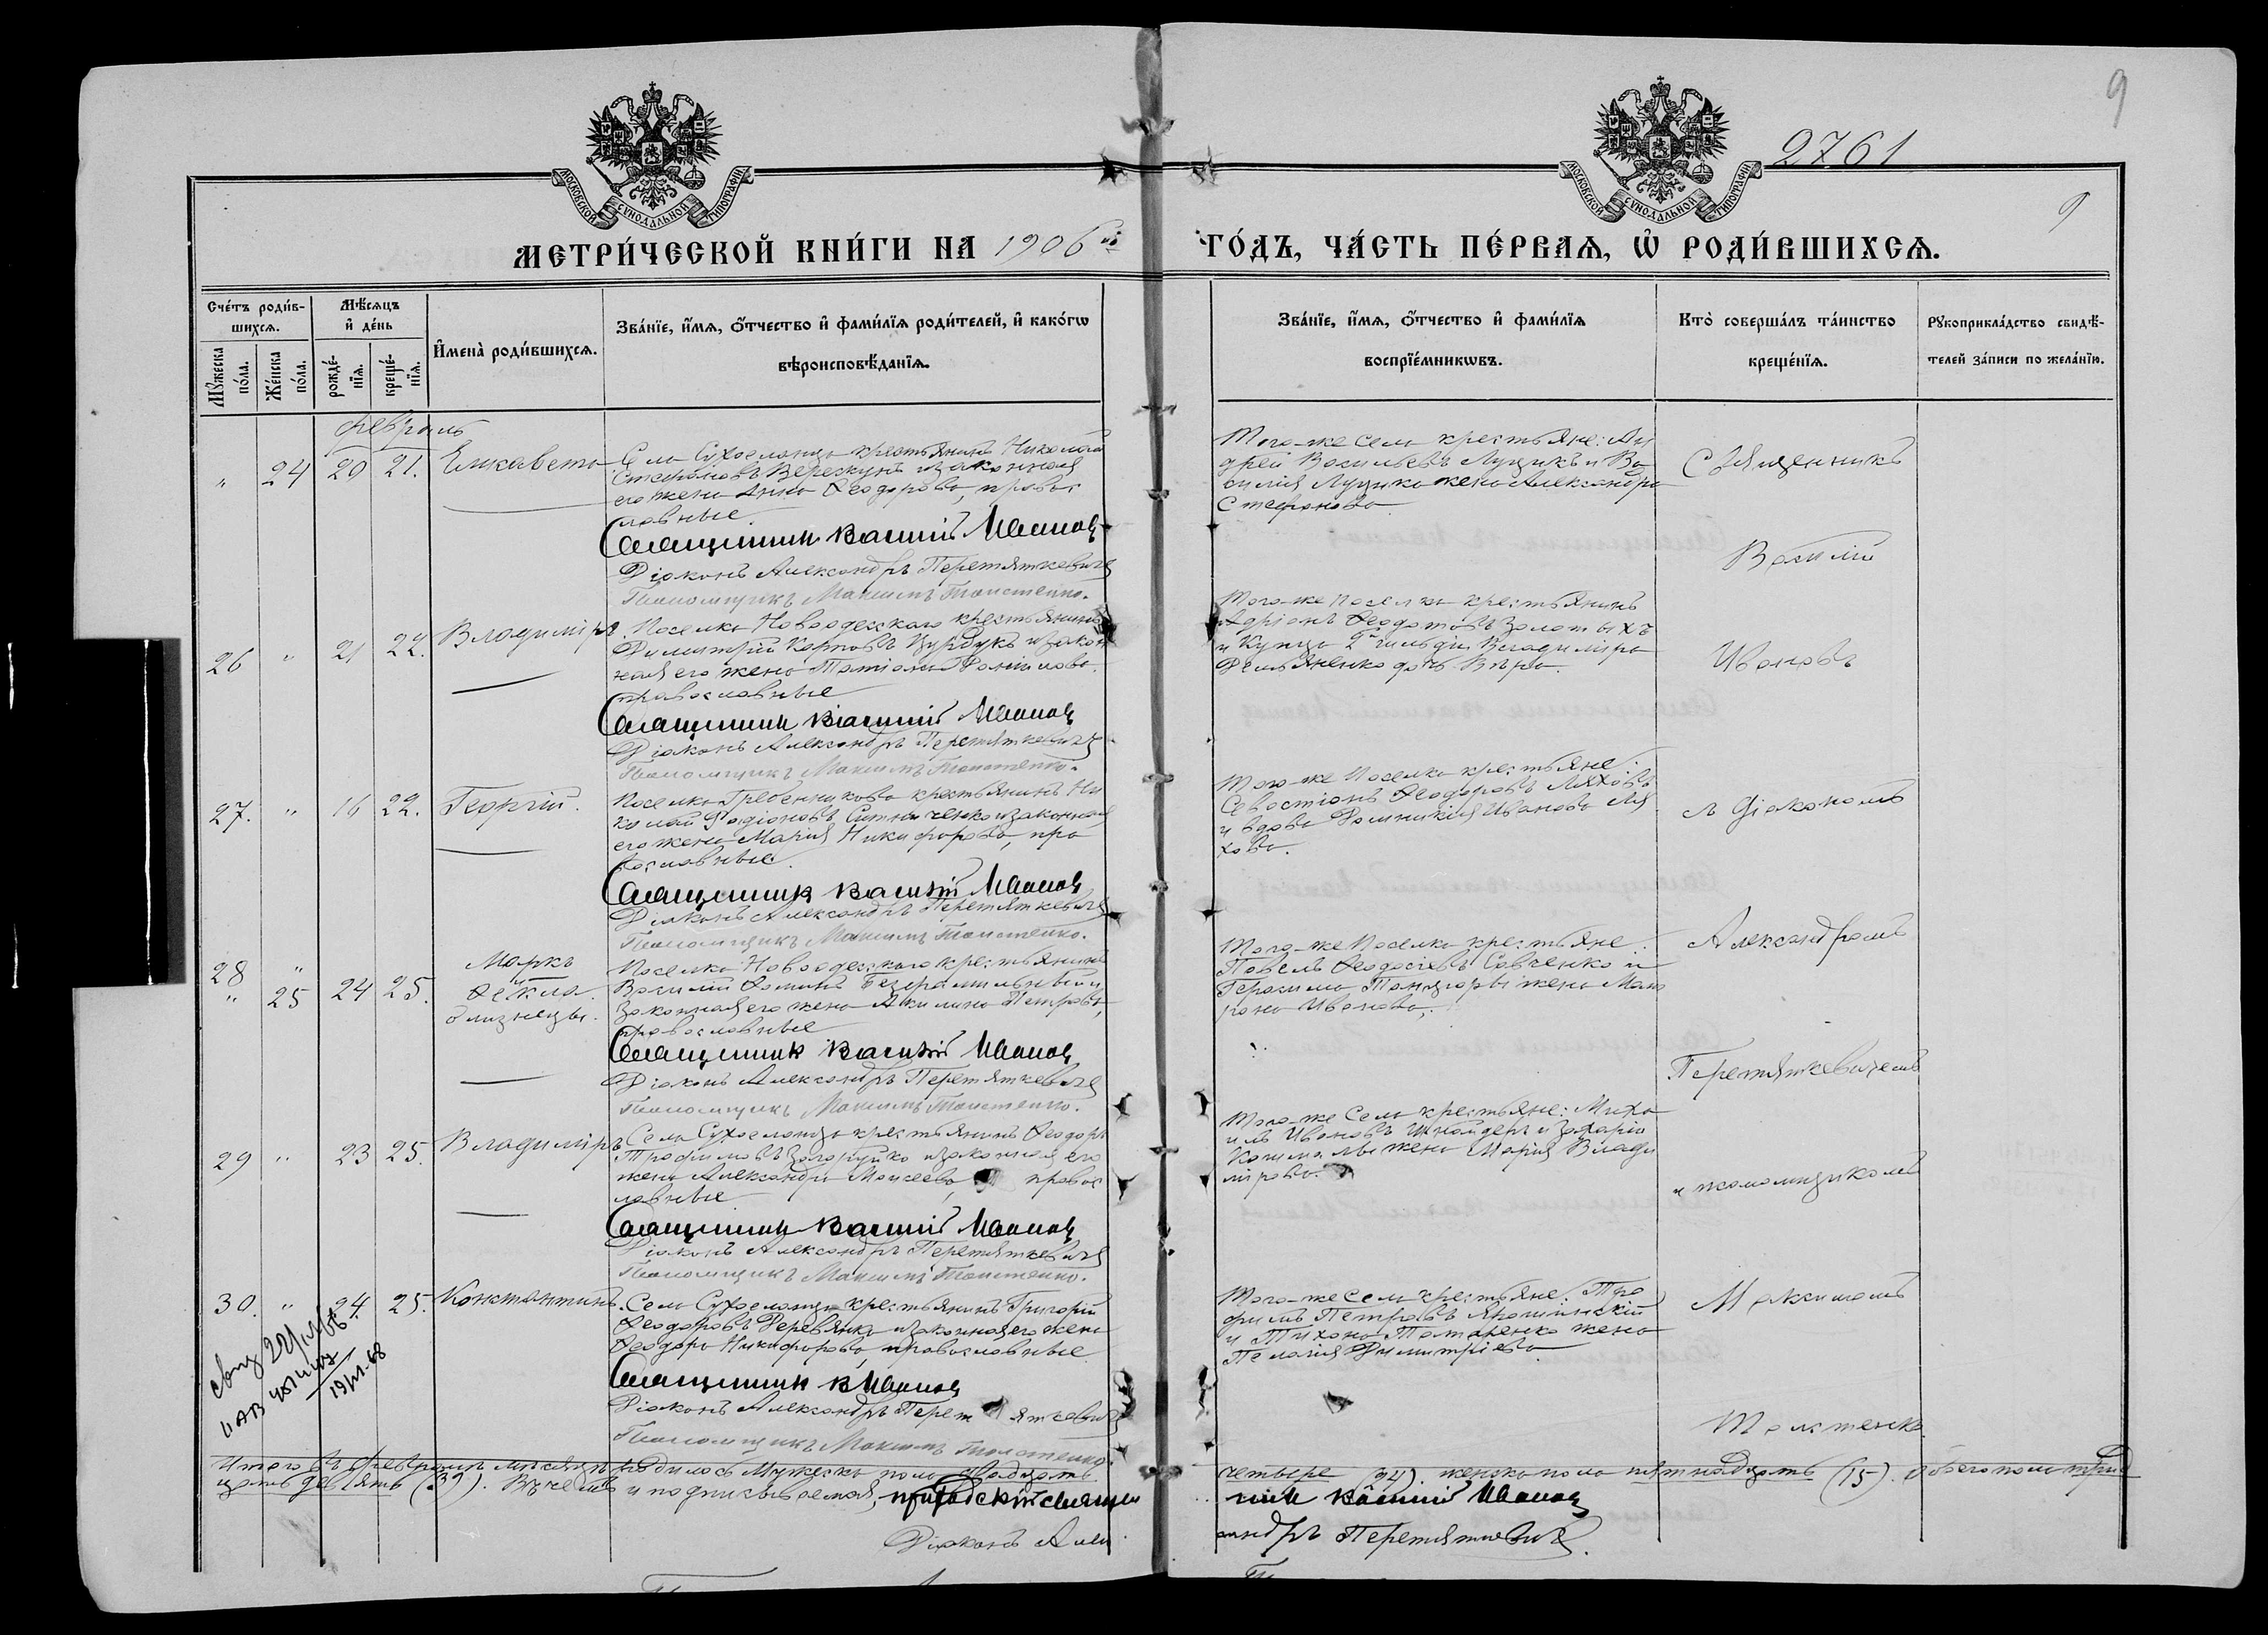 9
2761
9
МОСКОВСКОЙ СѴНОДАЛЬНОЙ ТИПОГРАФІИ
МОСКОВСКОЙ СѴНОДАЛЬНОЙ ТИПОГРАФІИ
МЕТРИ́ЧЕСКОЙ КНИ́ГИ НА 1906 й
ГО́ДЪ, ЧА́СТЬ ПЕ́РВАѦ, Ѡ҆ РОДИ́ВШИХСѦ.
Сче́тъ роди́в-
шихсѧ.
Мꙋ́жеска по́ла.
Же́нска по́ла.
Мѣ́сѧцъ
и҆ де́нь
рожде́-
нїѧ.
креще́-
нїѧ.
И҆мена̀ роди́вшихсѧ.
Зва́нїе, и҆́мѧ, ѻ҆́тчество и҆ фами́лїѧ роди́телей, и҆ како́гѡ
вѣроисповѣ́данїѧ.
Зва́нїе, и҆́мѧ, ѻ҆́тчество и҆ фами́лїѧ
воспрїе́мникѡвъ.
Кто̀ соверша́лъ та́инство
креще́нїѧ.
Рꙋкоприкла́дство свидѣ́-
телей за́писи по жела́нїю.
февраль
" 24 20 21. Елисавета
Села Сухоеланца крестьянинъ Николай
Стефановъ Верескунъ и законная
его жена Анна Ѳеодорова, правос
лавные.
Священникъ Василій Ивановъ
Діаконъ Александръ Перетяткевичъ
Псаломщикъ Максимъ Толстенко.
Того-же села крестьяне: Ан
дрей Васильевъ Луцикъ и Ва
силія Луцика жена Александра
Стефанова
Священникъ
Василій
26 " 21 22. Владиміръ.
Поселка Новоодесскаго крестьянинъ
Димитрій Карповъ и закон
ная его жена Татіана Данилова,
православные
Священникъ Василій Ивановъ
Діаконъ Александръ Перетяткевичъ
Псаломщикъ Максимъ Толстенко.
Того-же поселка крестьянинъ
Адріанъ Ѳеодотовъ Золотыхъ
и купца 2й гильдіи Владиміра
Демьяненко дочь Вѣра.
Ивановъ
27. " 16 22. Георгій.
Поселка Гребенникова крестьянинъ Ни
колай Родіоновъ Ситниченко и законная
его жена Марія Никифорова, пра
вославные.
Священникъ Василій Ивановъ
Діаконъ Александръ Перетяткевичъ
Псаломщикъ Максимъ Толстенко.
Того-же поселка крестьяне:
Севастіанъ Ѳеодоровъ Ляховъ
и вдова Домникія Иванова Ля
хова.
съ діакономъ
28 " 24 25. Маркъ
" 25 и Ѳекла
близнецы.
Поселка Новоодесскаго крестьянинъ
Василій Ѳоминъ и
законная его жена Акилина Петрова,
православные
Священникъ Василій Ивановъ
Діаконъ Александръ Перетяткевичъ
Псаломщикъ Максимъ Толстенко.
Того-же поселка крестьяне:
Павелъ Ѳеодосіевъ Савченко и
Герасима жена Мат
рона Иванова.
Александромъ
Перетяткевичемъ
29 " 23 25. Владиміръ.
Села Сухоеланца крестьянинъ Ѳеодоръ
Трофимовъ и законная его
жена Александра Моисеева, правос
лавные
Священникъ Василій Ивановъ
Діаконъ Александръ Перетяткевичъ
Псаломщикъ Максимъ Толстенко.
Того-же села крестьяне: Миха
илъ Ивановъ и Захарія
жена Марія Влади
мірова.
и псаломщикомъ
30. " 24. 25. Константинъ.
Села Сухоеланца крестьянинъ Григорій
Ѳеодоровъ Деревянко и законная его жена
Ѳеодора Никифорова, православные
Священникъ В Ивановъ
Діаконъ Александръ Перетяткевичъ
Псаломщикъ Максимъ Толстенко.
Того-же села крестьяне: Тро
фимъ Петровъ
и Тихона Татаренко жена
Пелагія Димитріева
Максимомъ
Толстенко
Итого въ февралѣ мѣсяцѣ родилось мужеска пола двадцать
четыре (24). женска пола пятнадцать (15). Обоего пола трид
цать девять (39). Въ чемъ и подписываемся, приходскій священ
никъ Василій Ивановъ
Діаконъ Алек
сандръ Перетяткевичъ.